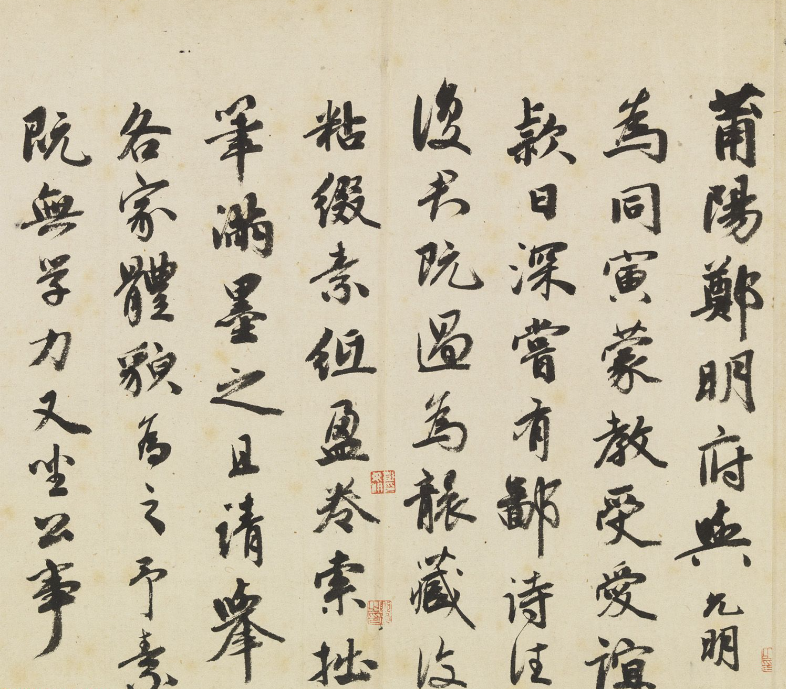 莆陽鄭明府與允明
為同寅蒙教受愛誼
款日深嘗有鄙詩往
復既過為襲藏
粘綴素絙盈卷索拙
筆滿墨之且請舉
各家體貌為之予素
既無学力又坐公事